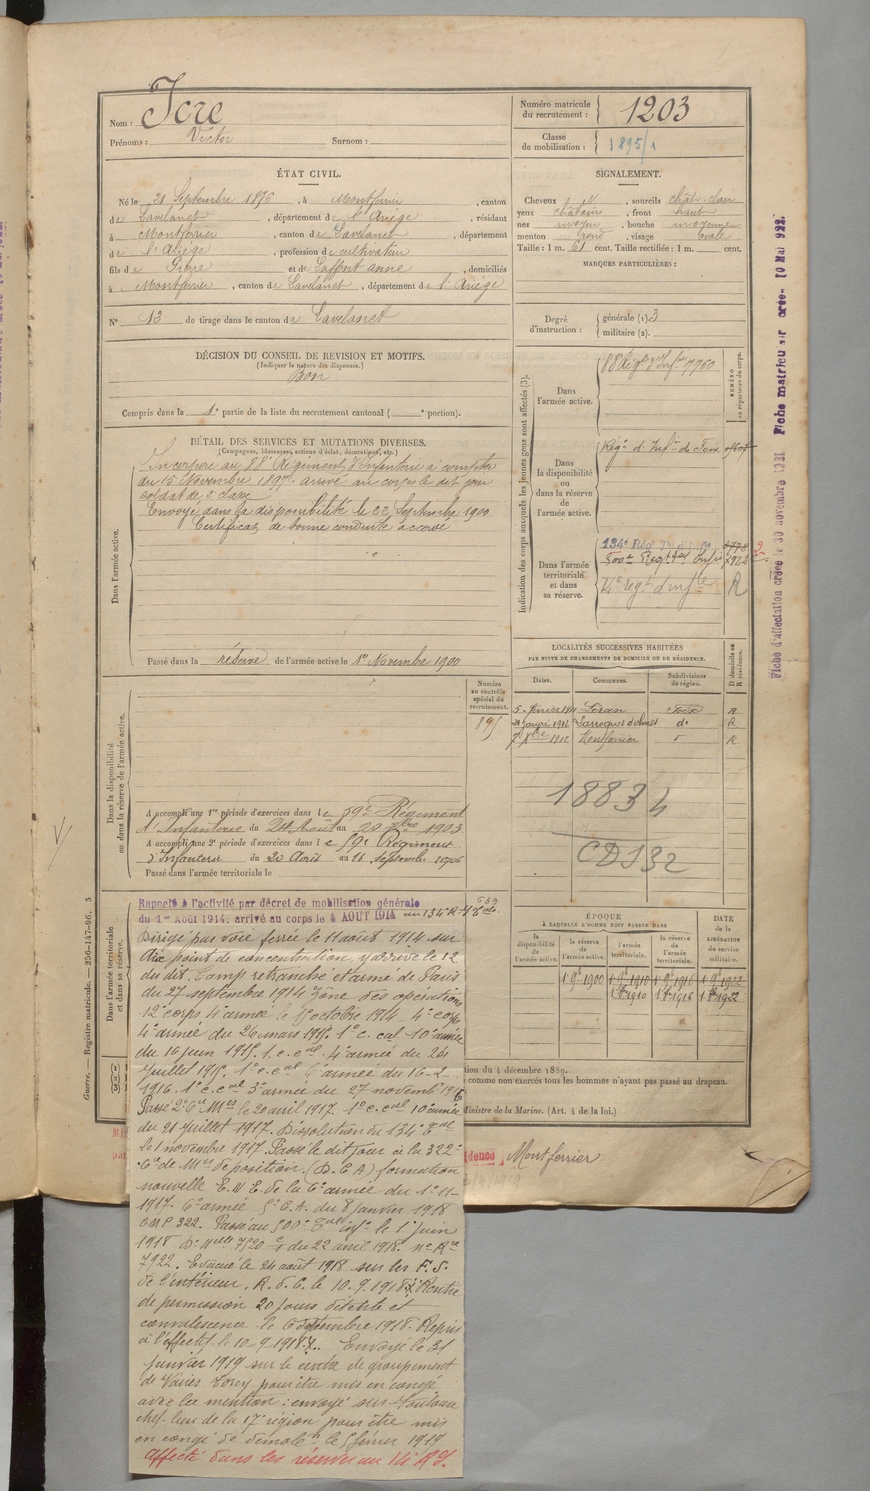 Nom : Icre
Prénoms : Victor Surnom :
Numéro matricule du recrutement : 1203
Classe de mobilisation : 1895/1
ÉTAT CIVIL.
Né le 21 Septembre 1876, à Montferrier, canton
de Lavelanet, département de l'Ariège, résidant
à Montferrier, canton de Lavelanet, département
de l'Ariège, profession de cultivateur
fils de Pierre et de Laffont anne, domiciliés
à Montferrier, canton de Lavelanet, département de l'Ariège
N° 13 de tirage dans le canton de Lavelanet
SIGNALEMENT.
Cheveux N, sourcils chât. clair
yeux châtains, front haut
nez moyen, bouche moyenne
menton rond, visage ovale
Taille : 1 m. 61 cent. Taille rectifiée : 1 m. cent.
MARQUES PARTICULIÈRES :
Degré d'instruction : générale (1) 3
militaire (2).
DÉCISION DU CONSEIL DE REVISION ET MOTIFS.
(Indiquer la nature des dispenses.)
Bon
Compris dans la 1e partie de la liste du recrutement cantonal ( e portion).
DÉTAIL DES SERVICES ET MUTATIONS DIVERSES.
(Campagnes, blessures, actions d'éclat, décorations, etc.)
Dans l'armée active.
Incorporé au 88e Régiment d'Infanterie à compter
du 15 Novembre 1897. arrivé au corps le dit jour
soldat de 2e classe
Envoyé dans la disponibilité le 22 Septembre 1900
Certificat de bonne conduite accordé
Passé dans la réserve de l'armée active le 1er Novembre 1900
Indication des corps auxquels les jeunes gens sont affectés (3).
Dans l'armée active.
88e Régt d'Infie 7760
NUMÉRO au répertoire du corps.
Dans la disponibilité ou dans la réserve de l'armée active.
Régt d'Infie de Foix
Dans l'armée territoriale et dans sa réserve.
134e Régt
500e Régt Tal Infie 7922
14e régt d'infie R
Fiche d'affectation créée le 30 novembre 1921 Fiche matricule créée 10 Mai 1922.
LOCALITÉS SUCCESSIVES HABITÉES
PAR SUITE DE CHANGEMENTS DE DOMICILE OU DE RÉSIDENCE.
Dates. Communes. Subdivisions de région. D domicile ou R résidence.
5 février 1911 Foix R
Janvier 1912 Larroque d'olmes do R
7 Xbre 1912 Montferrier R
18834
CD132
Numéro au contrôle spécial du recrutement.
Dans la disponibilité ou dans la réserve de l'armée active.
A accompli une 1re période d'exercices dans le 59e Régiment
d'Infanterie du 24 Août au 20 7bre 1903
A accompli une 2e période d'exercices dans le 59e Régiment
d'Infanterie du 20 Août au 16 septembre 1906
Passé dans l'armée territoriale le
Dans l'armée territoriale et dans sa réserve.
Rappelé à l'activité par décret de mobilisation générale
du 1er Août 1914. arrivé au corps le 4 AOUT 1914 au 134e R.
Dirigé par voie ferrée le 11 août 1914 sur
point de concentration, y arrive le 12
du dit. Camp retranché et armé de Paris
du 27 septembre 1914 zone des opérations
12e corps 4e armée le 15 octobre 1914 4e corps
4e armée du 26 mars 1915. 1e c. cal 10e armée
du 16 juin 1915. 1e c. cal 4e armée du 24
Juillet 1915. 1e c. cal 6e armée du 16-2-
1916. 1e c. cal 3e armée du 27 novembre 1916
Passé 2e Cie Mes le 20 avril 1917. 1e c. cal 10e armée
du 21 juillet 1917. Dissolution du 134e Tal
le 1 novembre 1917. Passé le dit jour à la 322e
Cie de Mes de position. (D.C.A) formation
nouvelle E.N.E. de la 6e armée du 1-11-
1917. 6e armée 5e C.A. du 8 janvier 1918
CMP 322. Passé au 500e Tal infie le 1er juin
1918 Don Melle 7520 du 22 avril 1918. no Rre
7922. Evacué le 24 août 1918 sur les F.S.
de l'intérieur. R. d. C. le 10.9.1918. Rentre
de permission 20 jours détente et
convalescence le 6 septembre 1918. Repris
à l'effectif le 10-9-1918. Envoyé le 31
janvier 1919 sur le centre de groupement
de Vaires Torcy pour être mis en congé
avec la mention : envoyé sur Toulouse
chef-lieu de la 17e région pour être mis
en congé de démoben le 5 février 1919
Affecté dans les réserves au 14e R.I.
ÉPOQUE
À LAQUELLE L'HOMME DOIT PASSER DANS
la disponibilité de l'armée active. la réserve de l'armée active. l'armée territoriale. la réserve de l'armée territoriale.
DATE de la LIBÉRATION du service militaire.
1 9bre 1900 1 9bre 1910 1 9bre 1916 1 9bre 1922
1 8bre 1910 1 8bre 1916 1 8bre 1922
tion du 4 décembre 1889.
comme non exercés tous les hommes n'ayant pas passé au drapeau.
Ministre de la Marine. (Art. 4 de la loi.)
idence Montferrier
Guerre. — Registre matricule. — 256-147-96. 3